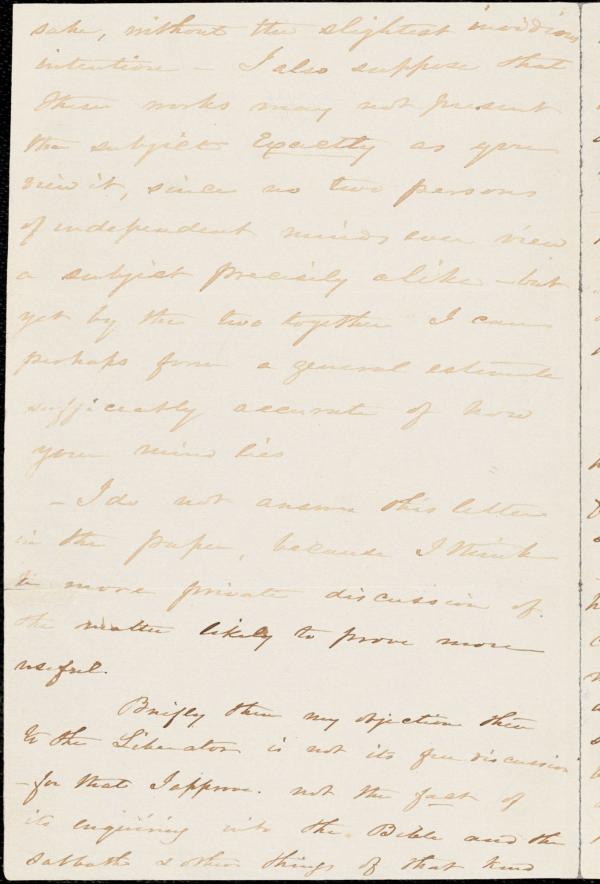 sake, without the slightest invidious
intention – I also suppose that
these works may not present
the subject Exactly as you
view it, since no two persons
of independent minds ever view
a subject precisely alike – but
yet by the two together I can
perhaps form a general estimate
sufficiently accurate of how
your mind lies
– I do not answer this letter
in the paper, because I think
a more private discussion of
the matter likely to prove more
useful.
Briefly then my objection then
to the Liberator is not its free discussion
– for that I approve. not the fact of
its enquiring into the Bible and the
Sabbath & other things of that kind